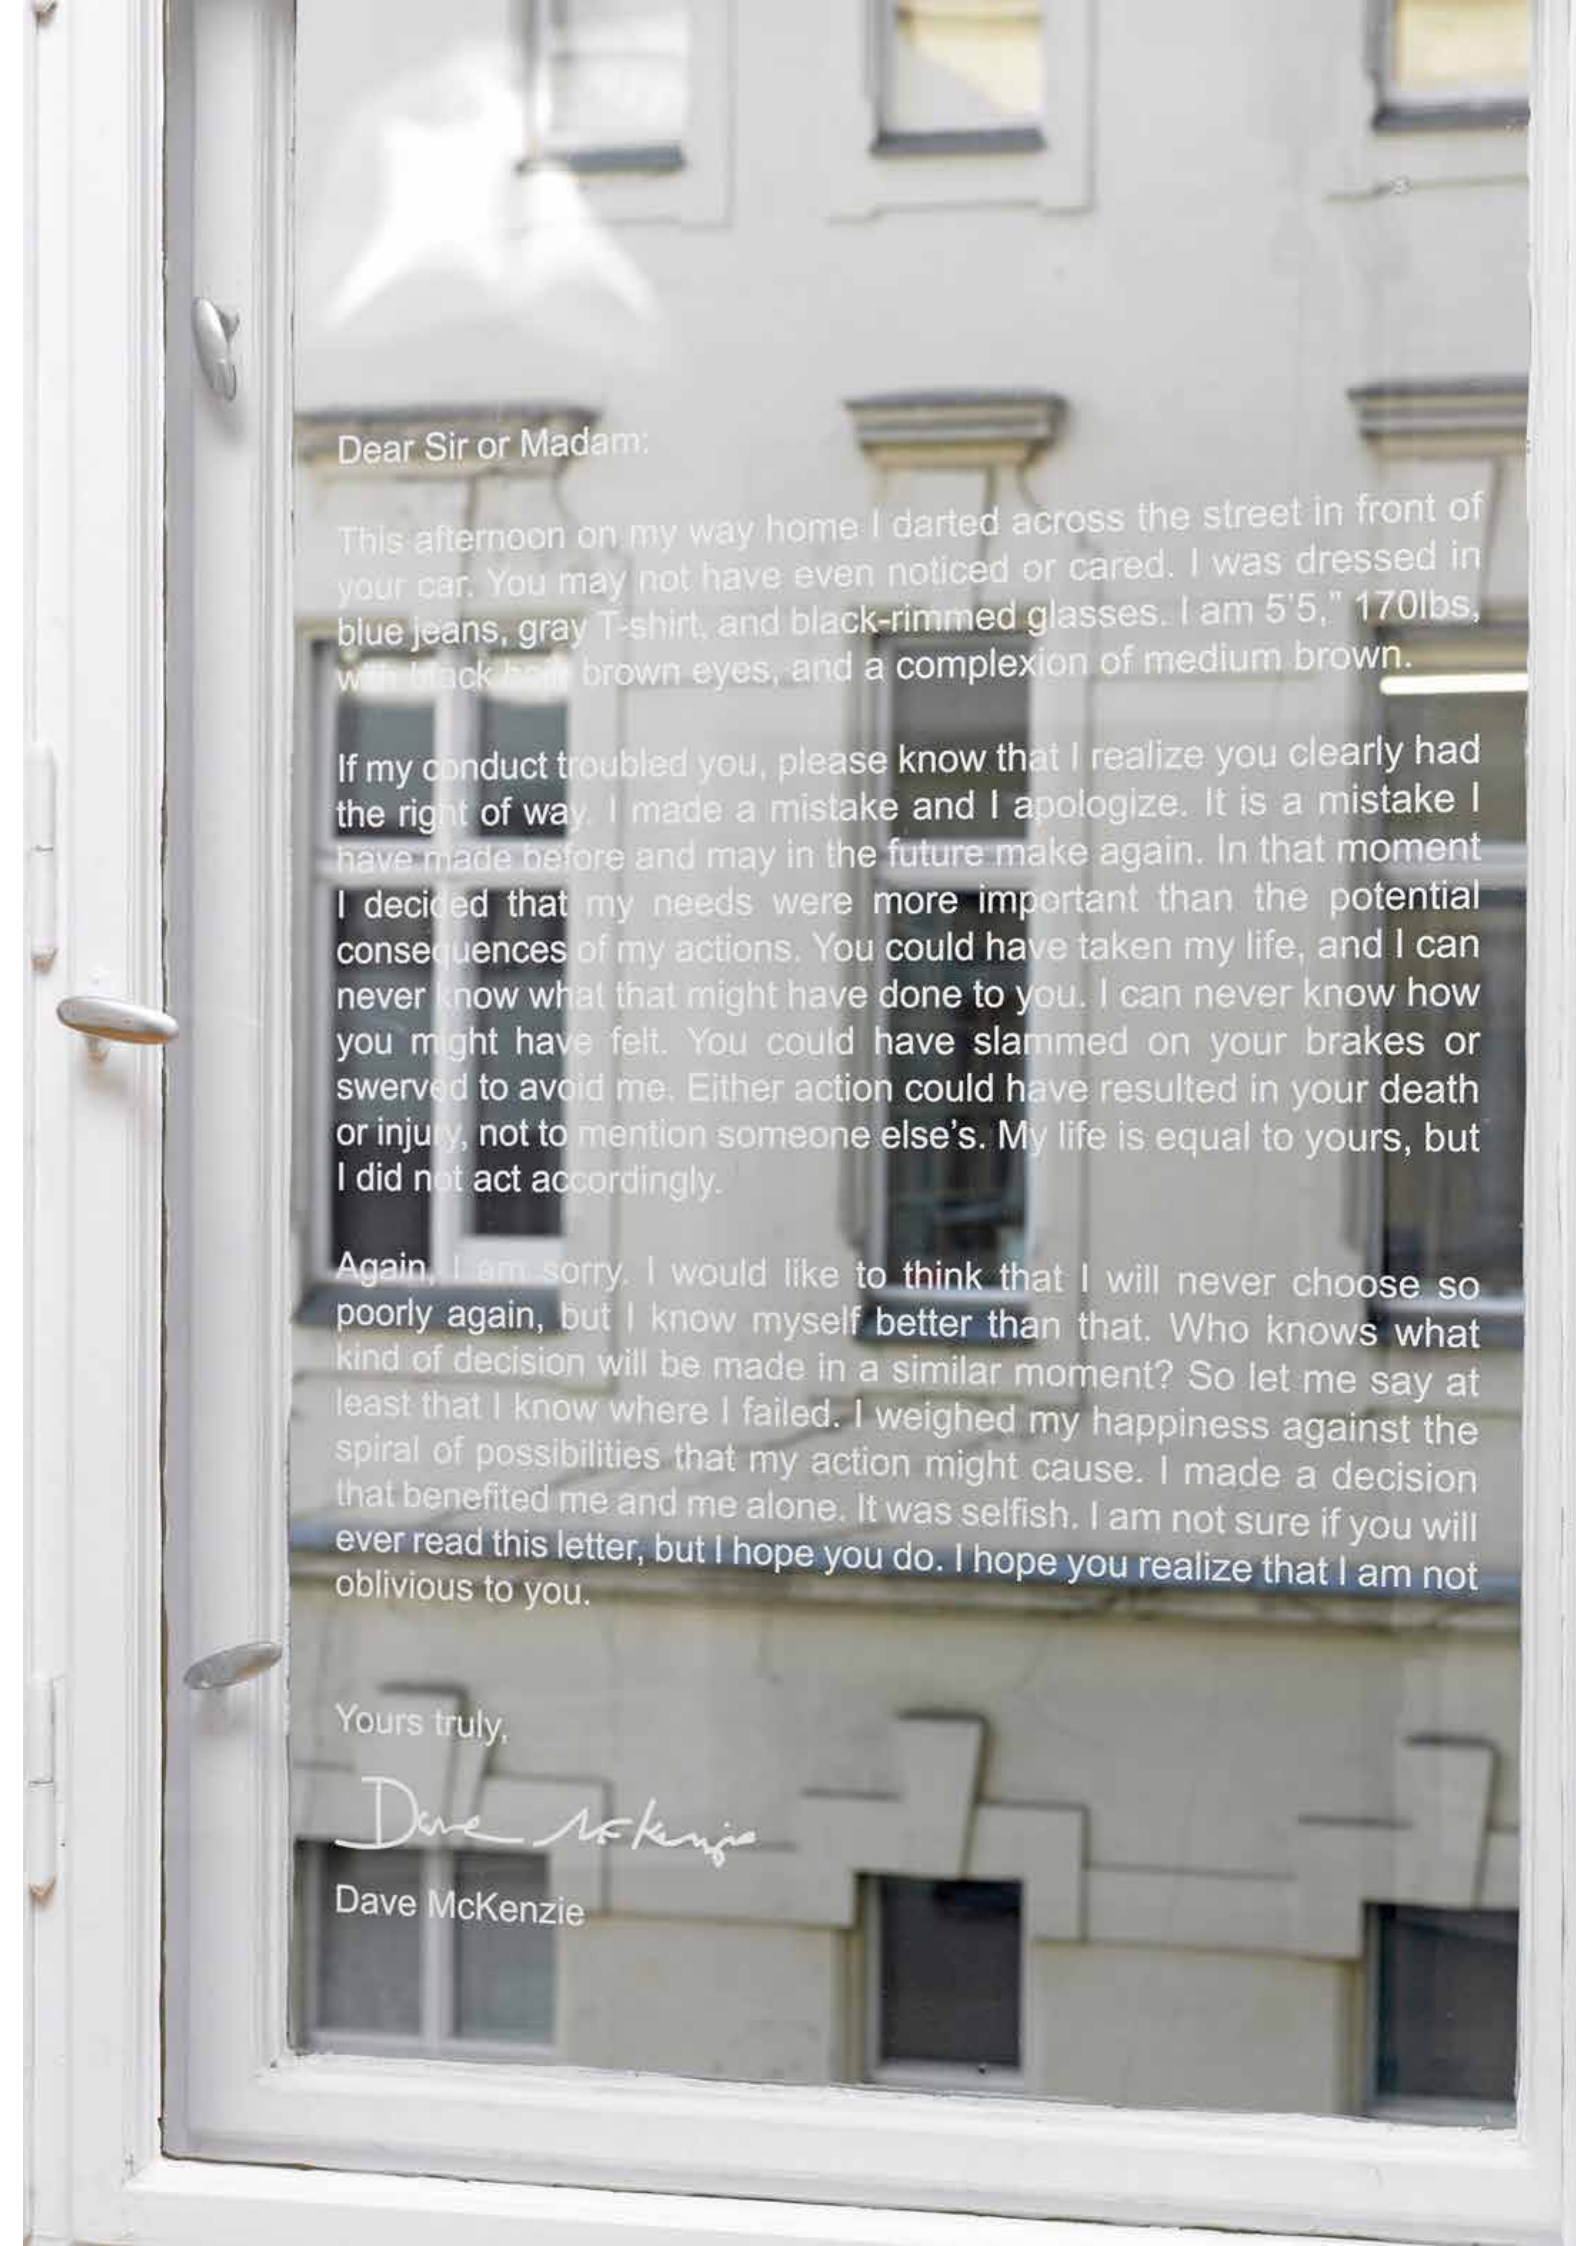 Dear Sir or Madam:
This afternoon on my way home I darted across the street in front of
your car. You may not have even noticed or cared. I was dressed in
blue jeans, gray T-shirt, and black-rimmed glasses. I am 5'5," 170lbs,
with black hair, brown eyes, and a complexion of medium brown.
If my conduct troubled you, please know that I realize you clearly had
the right of way. I made a mistake and I apologize. It is a mistake I
have made before and may in the future make again. In that moment
I decided that my needs were more important than the potential
consequences of my actions. You could have taken my life, and I can
never know what that might have done to you. I can never know how
you might have felt. You could have slammed on your brakes or
swerved to avoid me. Either action could have resulted in your death
or injury, not to mention someone else's. My life is equal to yours, but
I did not act accordingly.
Again, I am sorry. I would like to think that I will never choose so
poorly again, but I know myself better than that. Who knows what
kind of decision will be made in a similar moment? So let me say at
least that I know where I failed. I weighed my happiness against the
spiral of possibilities that my action might cause. I made a decision
that benefited me and me alone. It was selfish. I am not sure if you will
ever read this letter, but I hope you do. I hope you realize that I am not
oblivious to you.
Yours truly,
Dave McKenzie
Dave McKenzie